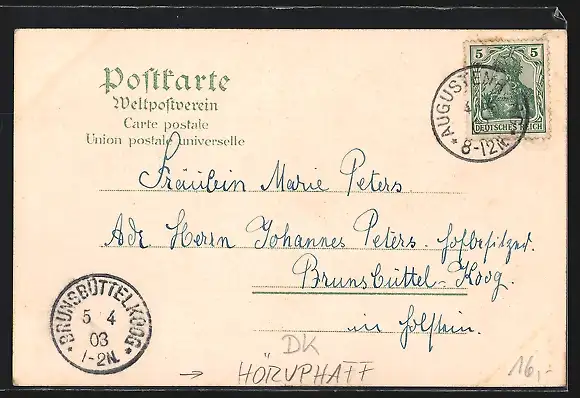 Postkarte
Weltpostverein
Carte postale
Union postale universelle
5 5
DEUTSCHES REICH
*AUGUSTENB
8-12N.
Fräulein Marie Peters.
Adr. Herrn Johannes Peters. Hofbesitzer.
Brunsbüttel-Koog.
in Holstein.
*BRUNSBÜTTELKOOG*
5 4
03
1-2N.
DK
→ HÖRUPHAFF
16,-